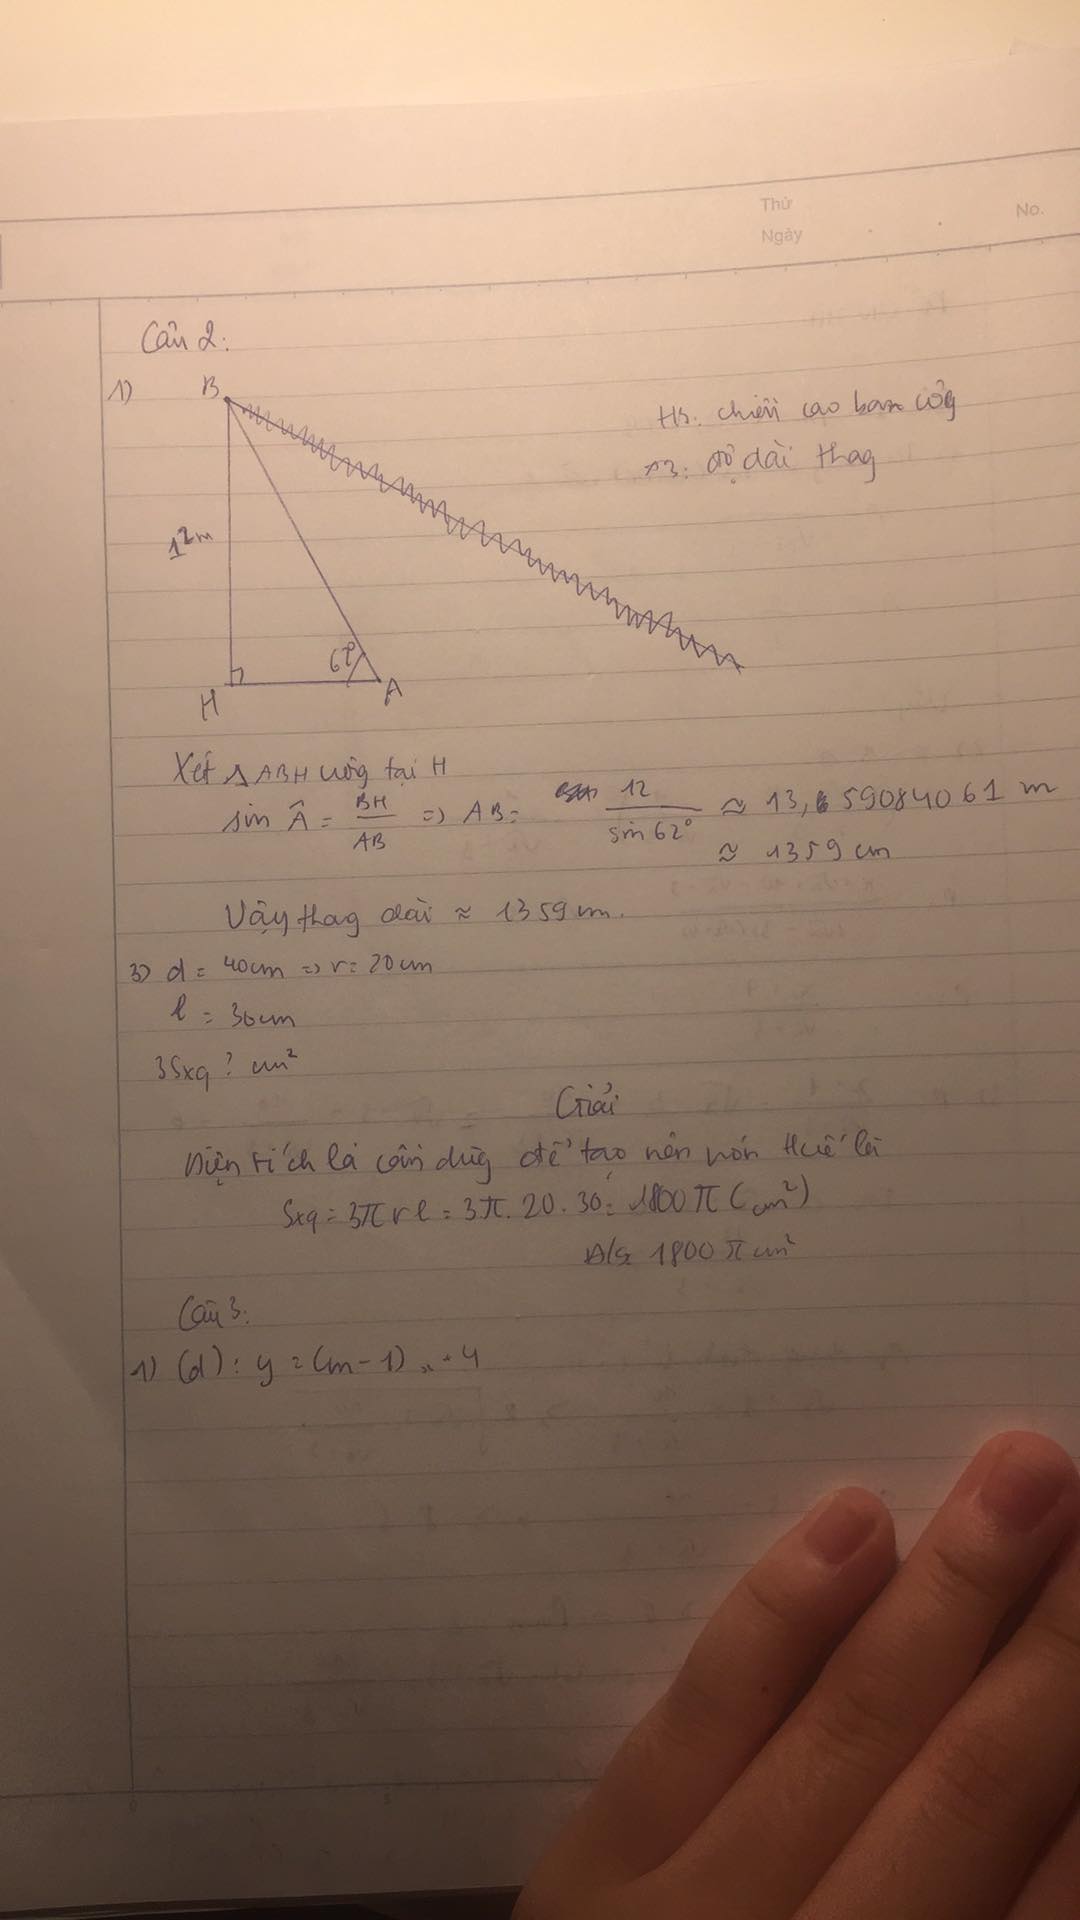 Thứ
Ngày
No.
Câu 2:
1)
B
HB: chiều cao ban côg
AB: độ dài thag
12m
62°
H
A
Xét △ABH vuôg tại H
sin Â = BH/AB => AB = 12/sin 62° ≈ 13,59084061 m
≈ 1359 cm
Vậy thag dài ≈ 1359 cm.
3) d = 40cm => r = 20cm
l = 30cm
3Sxq ? cm²
Giải
Diện tích lá cần dùg để tạo nên nón Huế là
Sxq = 3πrl = 3π. 20. 30 = 1800π (cm²)
Đ/s: 1800π cm²
Câu 3:
1) (d): y = (m-1)x - 4